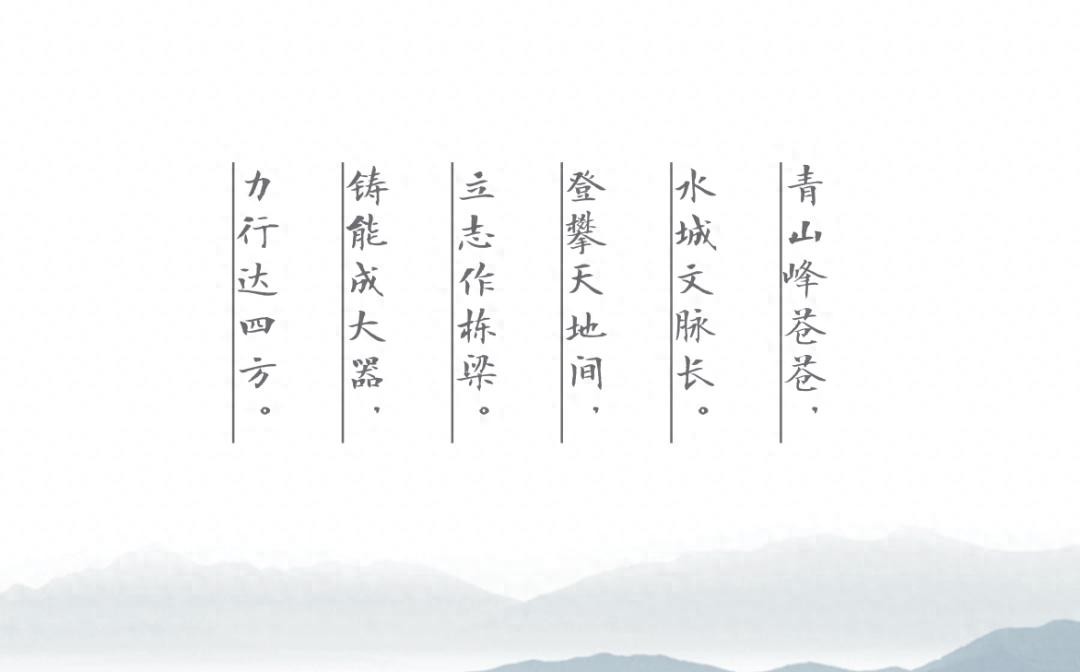 青山峰苍苍，
水城文脉长。
登攀天地间，
立志作栋梁。
铸能成大器，
力行达四方。